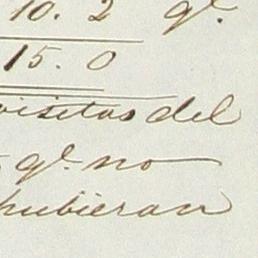 10. 2 qe.
15. 0
visitas del
qe. no
hubieran